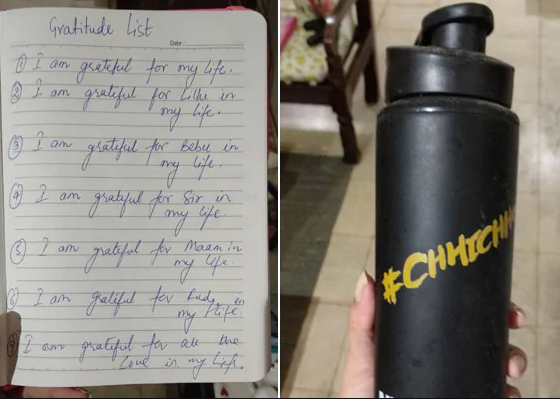 Gratitude List
Date :
① I am grateful for my life.
② I am grateful for Lilke in
my life.
③ I am grateful for Bebu in
my life.
④ I am grateful for Sir in
my life.
⑤ I am grateful for Maam in
my life.
⑥ I am grateful for in
my life.
I am grateful for all the
Love in my life.
#CHHICHH